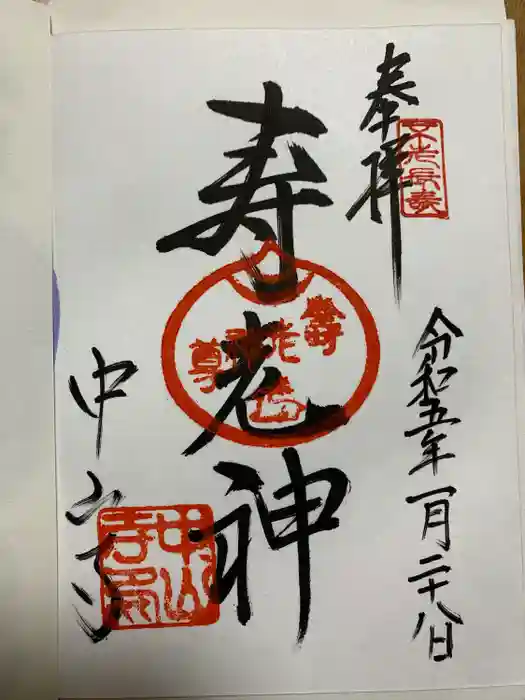 奉拝
不老長寿
令和五年一月二十八日
寿老神
寿老尊
中山寺
中山寺印